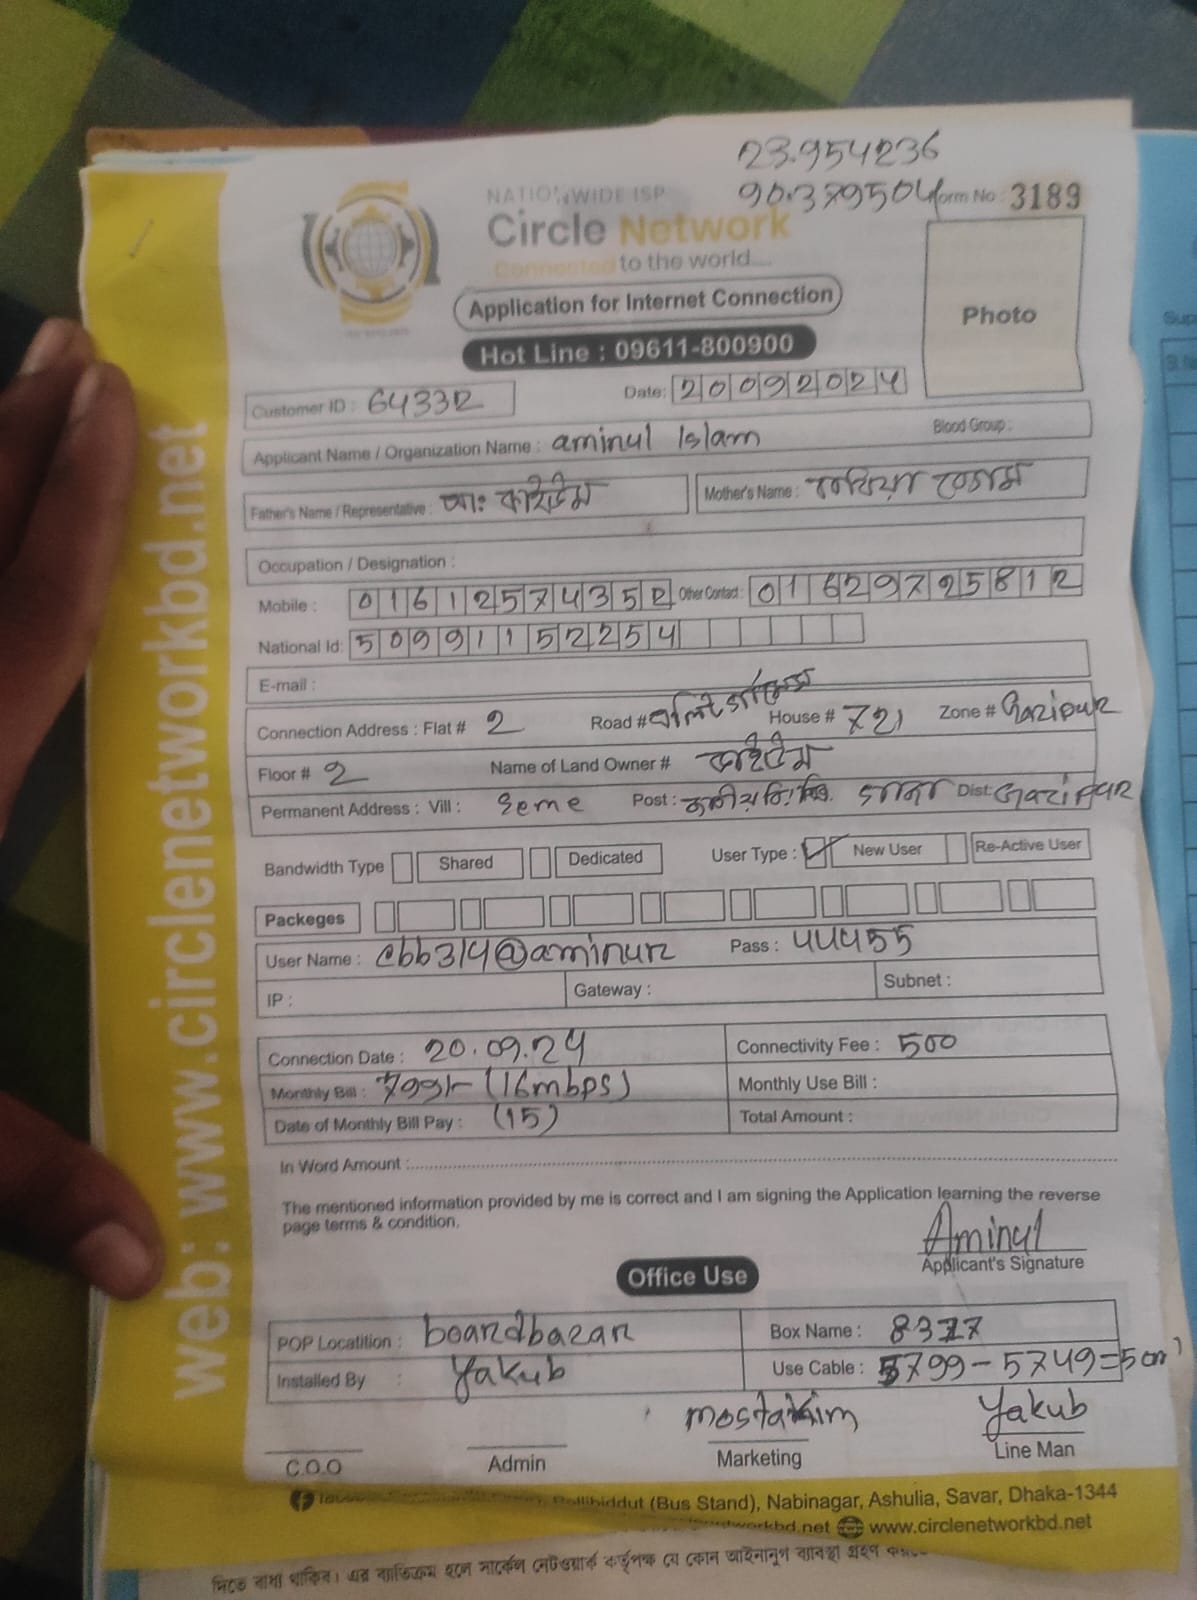 23.954236
90.379504
Form No : 3189
NATIONWIDE ISP
Circle Network
Connected to the world....
Application for Internet Connection
Photo
Hot Line : 09611-800900
Customer ID : 64332
Date: 20092024
Applicant Name / Organization Name : aminul Islam
Blood Group :
Father's Name / Representative :
Mother's Name : বেগম
Occupation / Designation :
Mobile : 01612574352 Other Contact : 01629725812
National Id: 50991152254
E-mail :
Connection Address : Flat # 2 Road # House # 721 Zone # Gazipur
Floor # 2 Name of Land Owner #
Permanent Address : Vill : Seme Post : Dist: Gazipur
Bandwidth Type Shared Dedicated User Type : New User Re-Active User
Packeges
User Name : cbb314@aminur Pass : 444455
IP : Gateway : Subnet :
Connection Date : 20.09.24 Connectivity Fee : 500
Monthly Bill : 799/- (16mbps) Monthly Use Bill :
Date of Monthly Bill Pay : (15) Total Amount :
In Word Amount :
The mentioned information provided by me is correct and I am signing the Application learning the reverse
page terms & condition.
Aminul
Applicant's Signature
Office Use
POP Locatition : boardbazar Box Name : 8377
Installed By : Yakub Use Cable : 5799-5749=50m
mostakim Yakub
C.O.O Admin Marketing Line Man
Pollibiddut (Bus Stand), Nabinagar, Ashulia, Savar, Dhaka-1344
www.circlenetworkbd.net
web: www.circlenetworkbd.net
দিতে বাধ্য থাকিব। এর ব্যতিক্রম হলে সার্কেল নেটওয়ার্ক কর্তৃপক্ষ যে কোন আইনানুগ ব্যবস্থা গ্রহণ